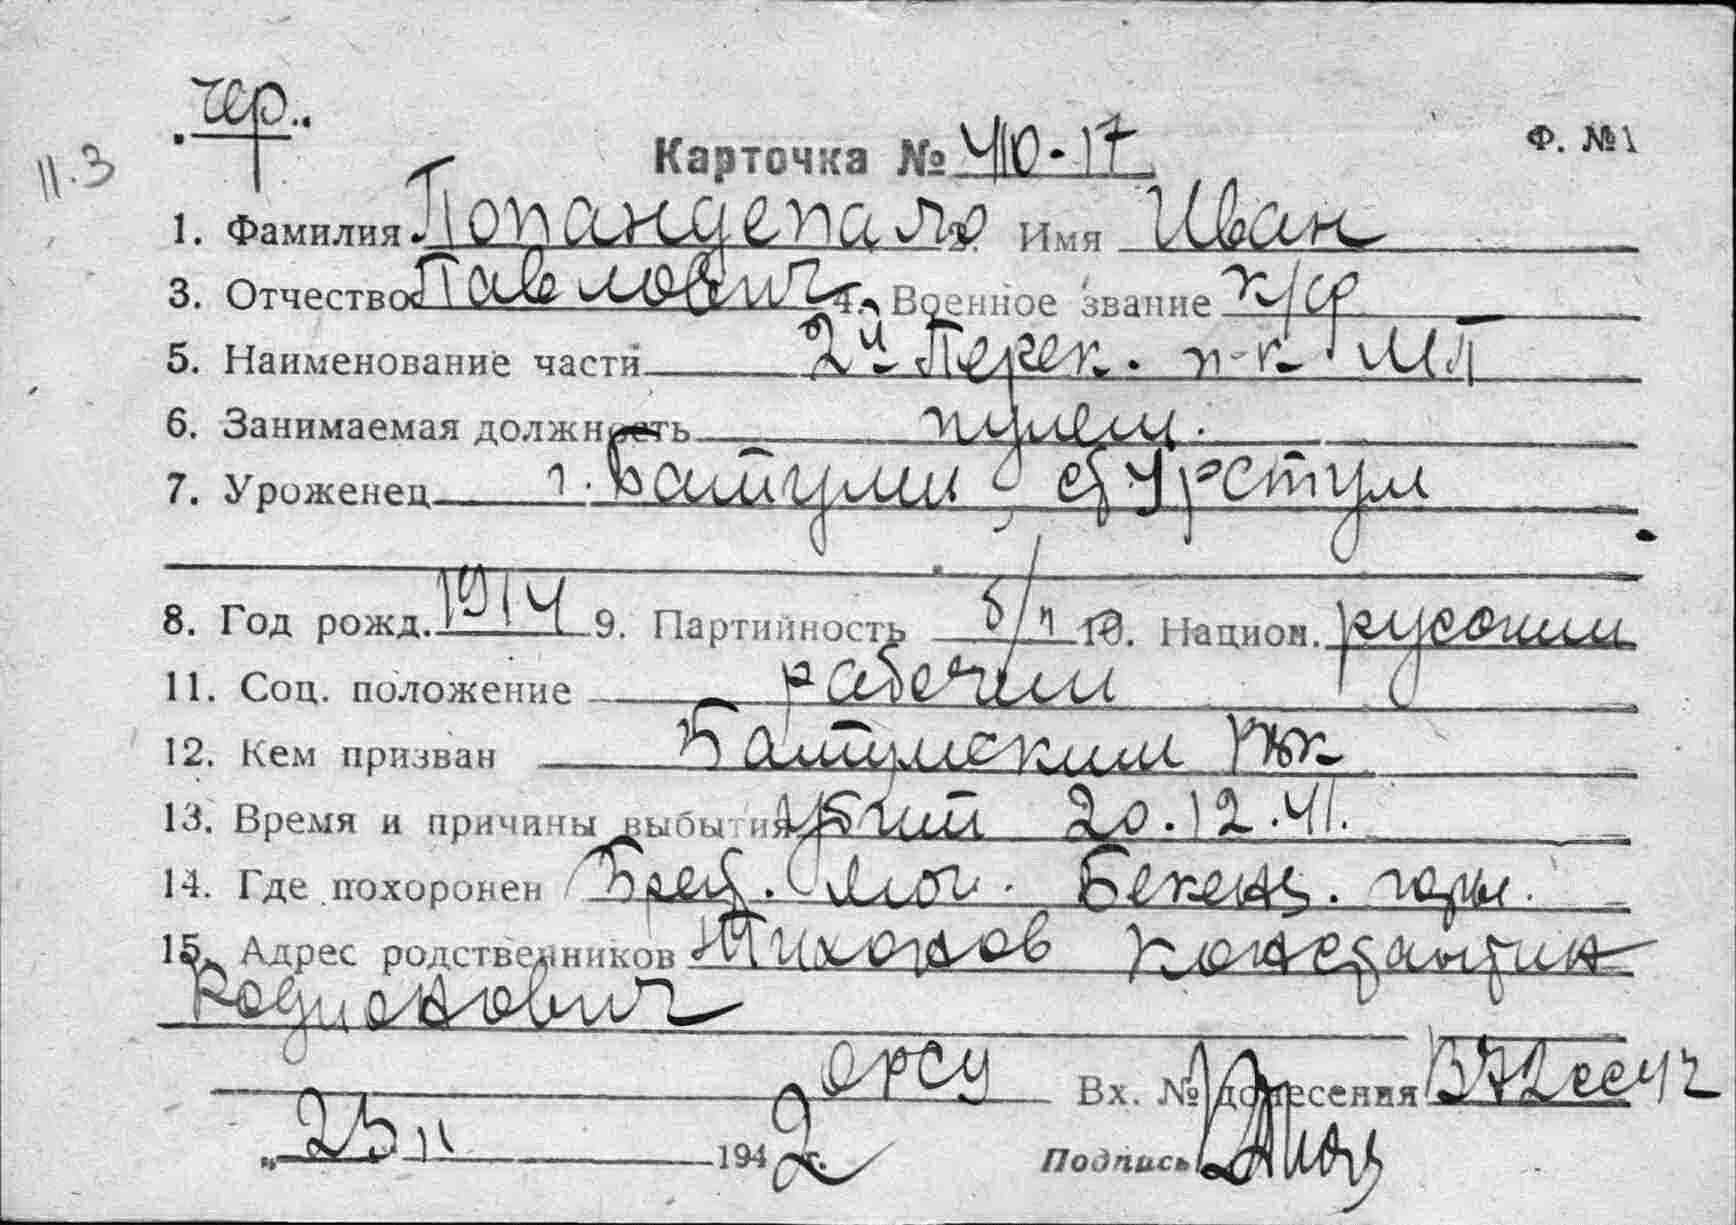 чер.
11.3
Карточка № 410-17
Ф. №1
1. Фамилия Попандепало 2. Имя Иван
3. Отчество Павлович 4. Военное звание к/ф
5. Наименование части 2й Перек. п-к МП
6. Занимаемая должность пулем.
7. Уроженец г. Батуми,
8. Год рожд. 1914 9. Партийность б/п 10. Национ. русский
11. Соц. положение рабочий
12. Кем призван Батумским РВК
13. Время и причины выбытия убит 20.12.41.
14. Где похоронен Брат. мог. Бекенз. горы.
15. Адрес родственников Тихонов Константин
Родионович
ОРСУ Вх. № донесения
„ 23 II 1942 г. Подпись